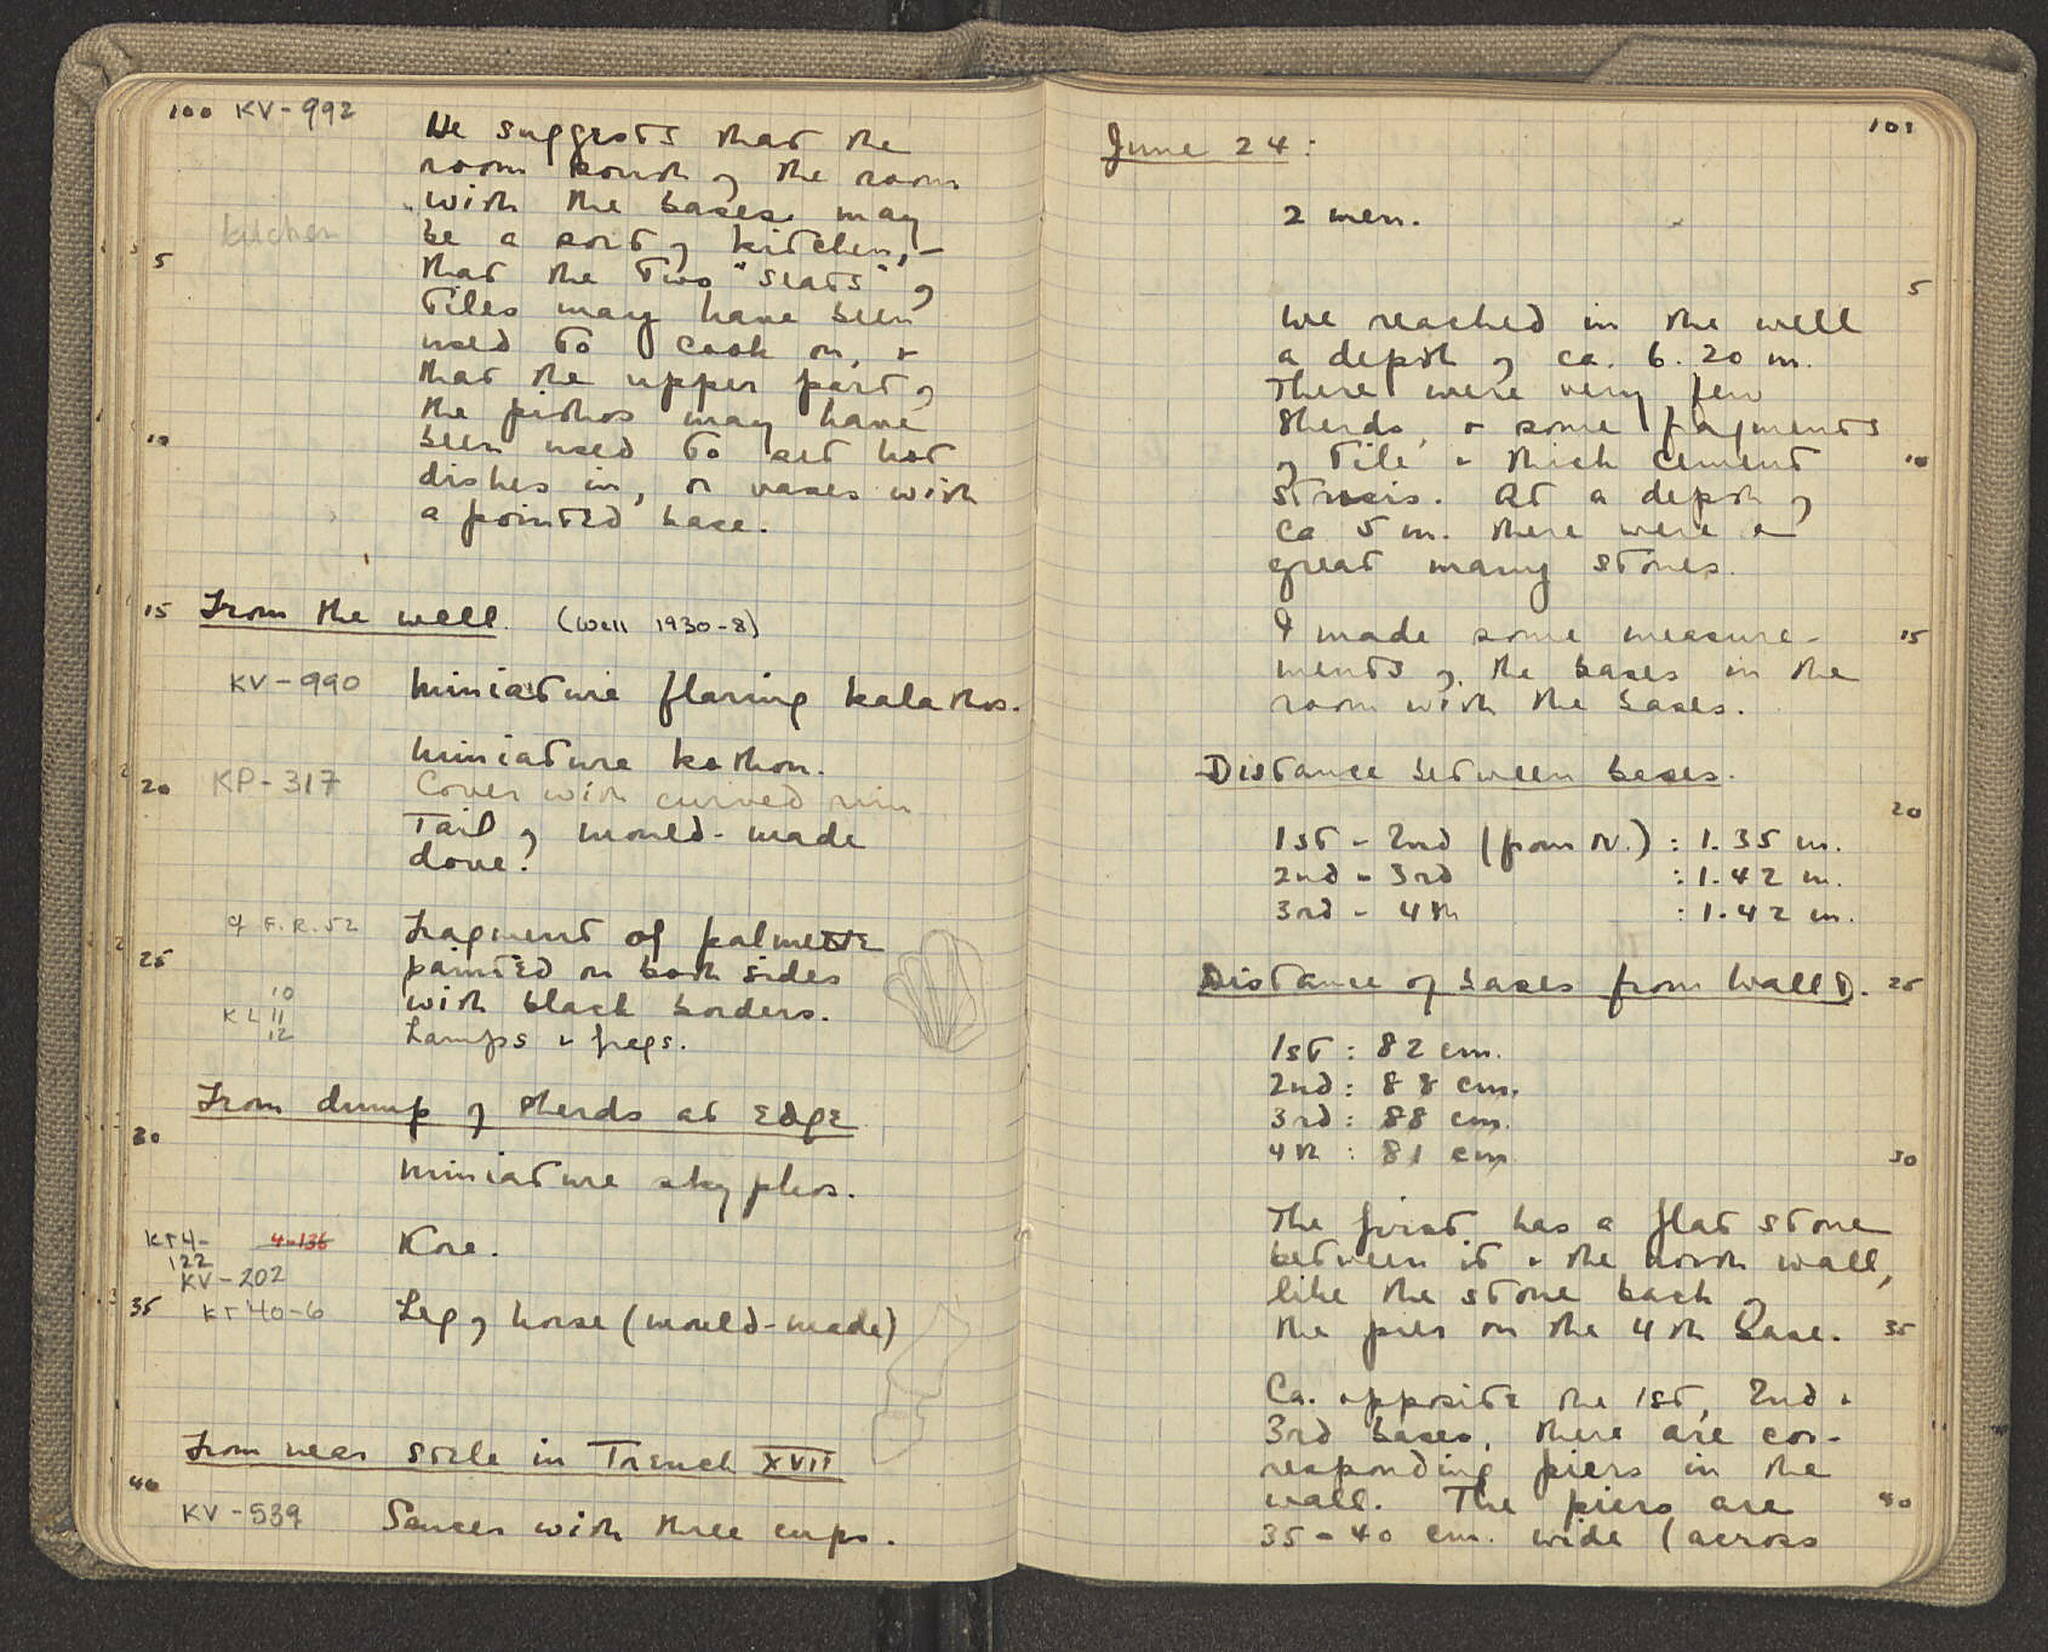 100 KV-992
He suggests that the
room south of the room
with the bases may
kitchen
be a sort of kitchen, -
5
that the two "seats" of
tiles may have been
used to cook on, +
that the upper part of
the pithos may have
10
been used to set hot
dishes in, or vases with
a pointed base.
15 From the well. (Well 1930-8)
KV-990 Miniature flaring kalathos.
Miniature kothon.
20 KP-317 Cover with curved rim
Tail of mould-made
dove?
cf F.R. 52 Fragment of palmette
25 painted on both sides
10
with black borders.
KL 11
12
Lamps + frags.
From dump of sherds at edge
30
Miniature skyphos.
KT4- 4-136 Kore.
122
KV-202
35 KT 40-6 Leg of horse (mould-made)
From near stele in Trench XVII
40
KV-539 Saucer with three cups.
101
June 24:
2 men.
5
We reached in the well
a depth of ca. 6.20 m.
There were very few
sherds, + some fragments
of tile + thick cement 10
strosis. At a depth of
ca 5 m. there were a
great many stones.
I made some measure- 15
ments of the bases in the
room with the bases.
Distance between bases.
20
1st - 2nd (from N.) : 1.35 m.
2nd - 3rd : 1.42 m.
3rd - 4th : 1.42 m.
Distance of bases from Wall D. 25
1st : 82 cm.
2nd : 88 cm.
3rd : 88 cm.
4th : 81 cm 30
The first has a flat stone
between it + the north wall,
like the stone back of
the pier on the 4th base. 35
Ca. opposite the 1st, 2nd +
3rd bases, there are cor-
responding piers in the
wall. The piers are 40
35-40 cm. wide (across